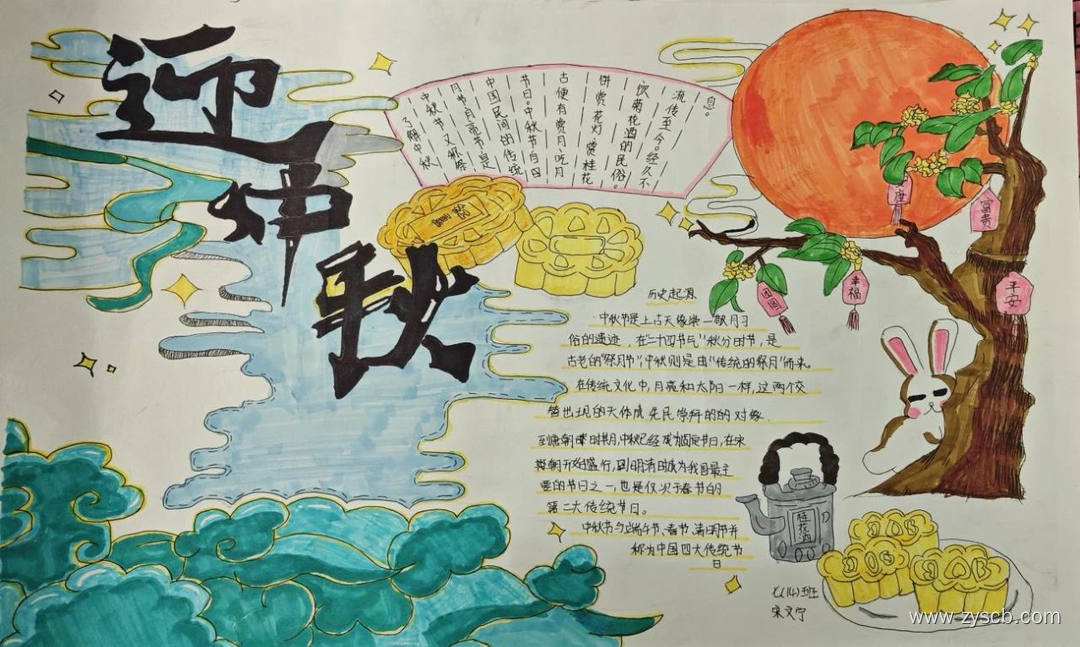 迎中秋
了解中秋
中秋节又称祭
月节月亮节是
中国民间的传统
节日。中秋节自
古便有赏月吃月
饼赏花灯赏桂花
饮菊花酒的民俗。
流传至今。经久不
息。
富贵
平安
幸福
团圆
历史起源
中秋节是上古天象崇一敬月习
俗的遗迹,在"二十四节气"秋分时节,是
古老的"祭月节",中秋则是由"传统的祭月"而来。
在传统文化中,月亮和太阳一样,这两个交
替出现的天体成先民崇拜的的对象
至唐朝时期,中秋已经成为固定节日,在宋
朝开始盛行,到明清时成为我国最主
要的节日之一,也是仅次于春节的
第二大传统节日。
中秋节与端午节、春节、清明节并
称为中国四大传统节
日
桂花酒
七(14)班
宋文宁
www.zyscb.com